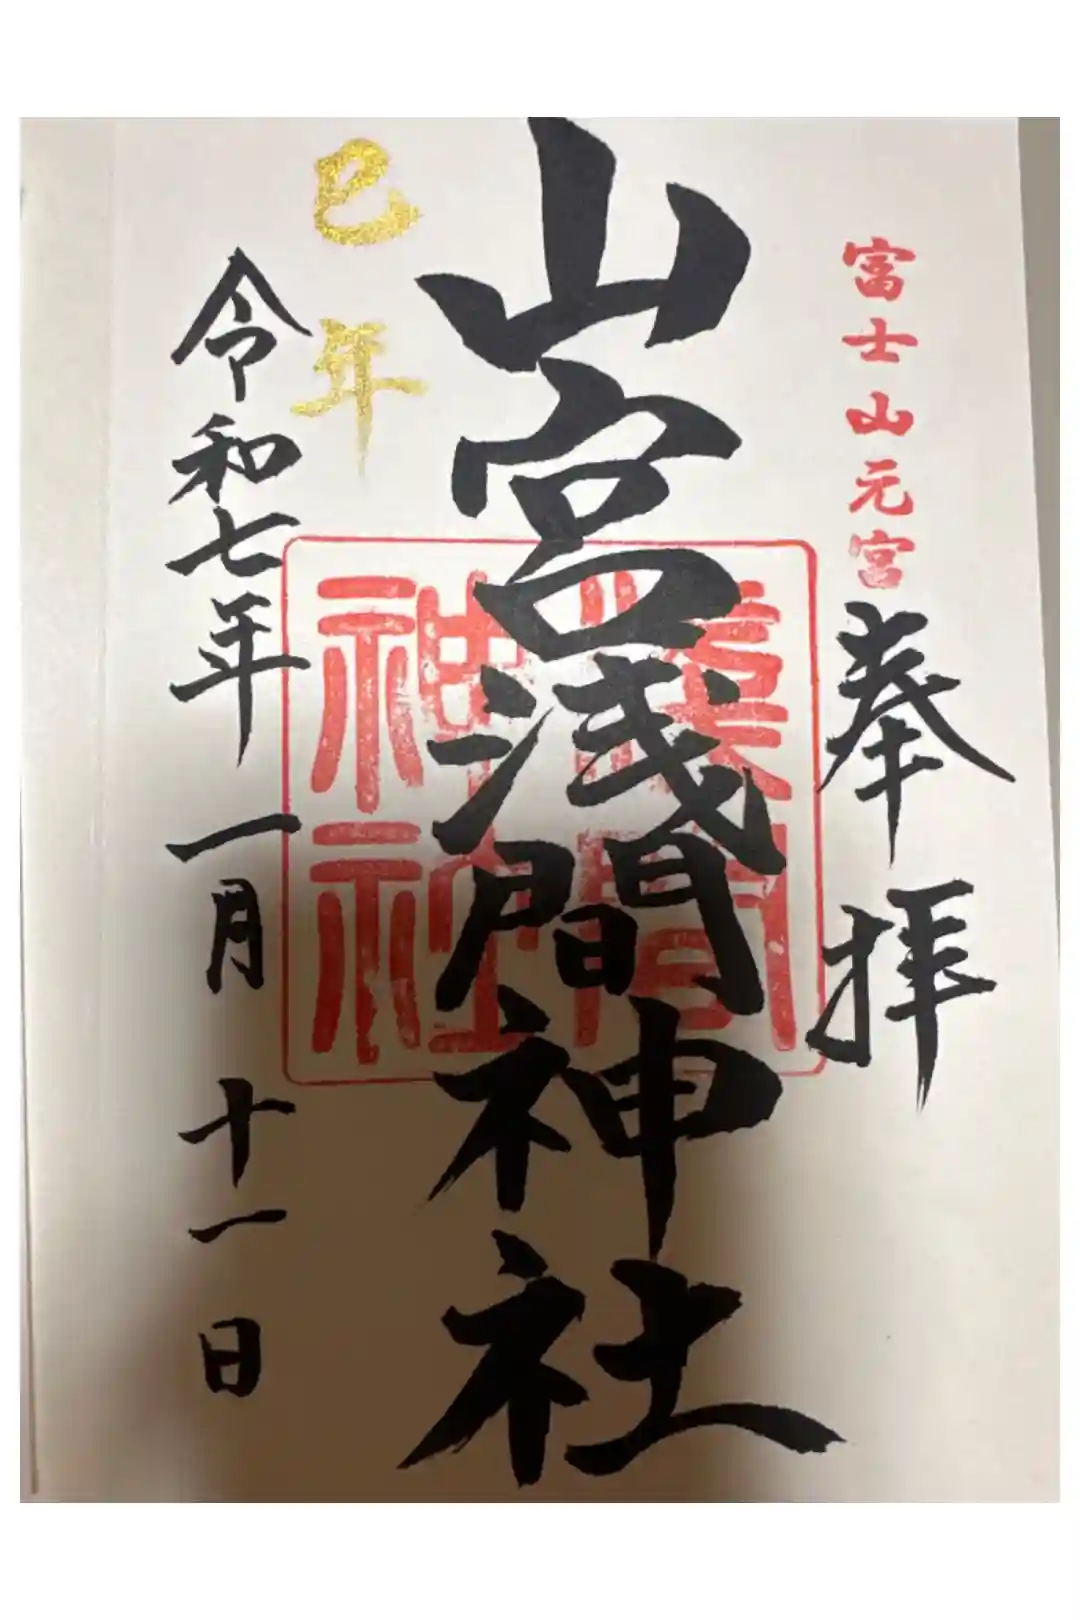 富士山元宮
奉拝
山宮浅間神社
淺間神社
巳年
令和七年一月十一日